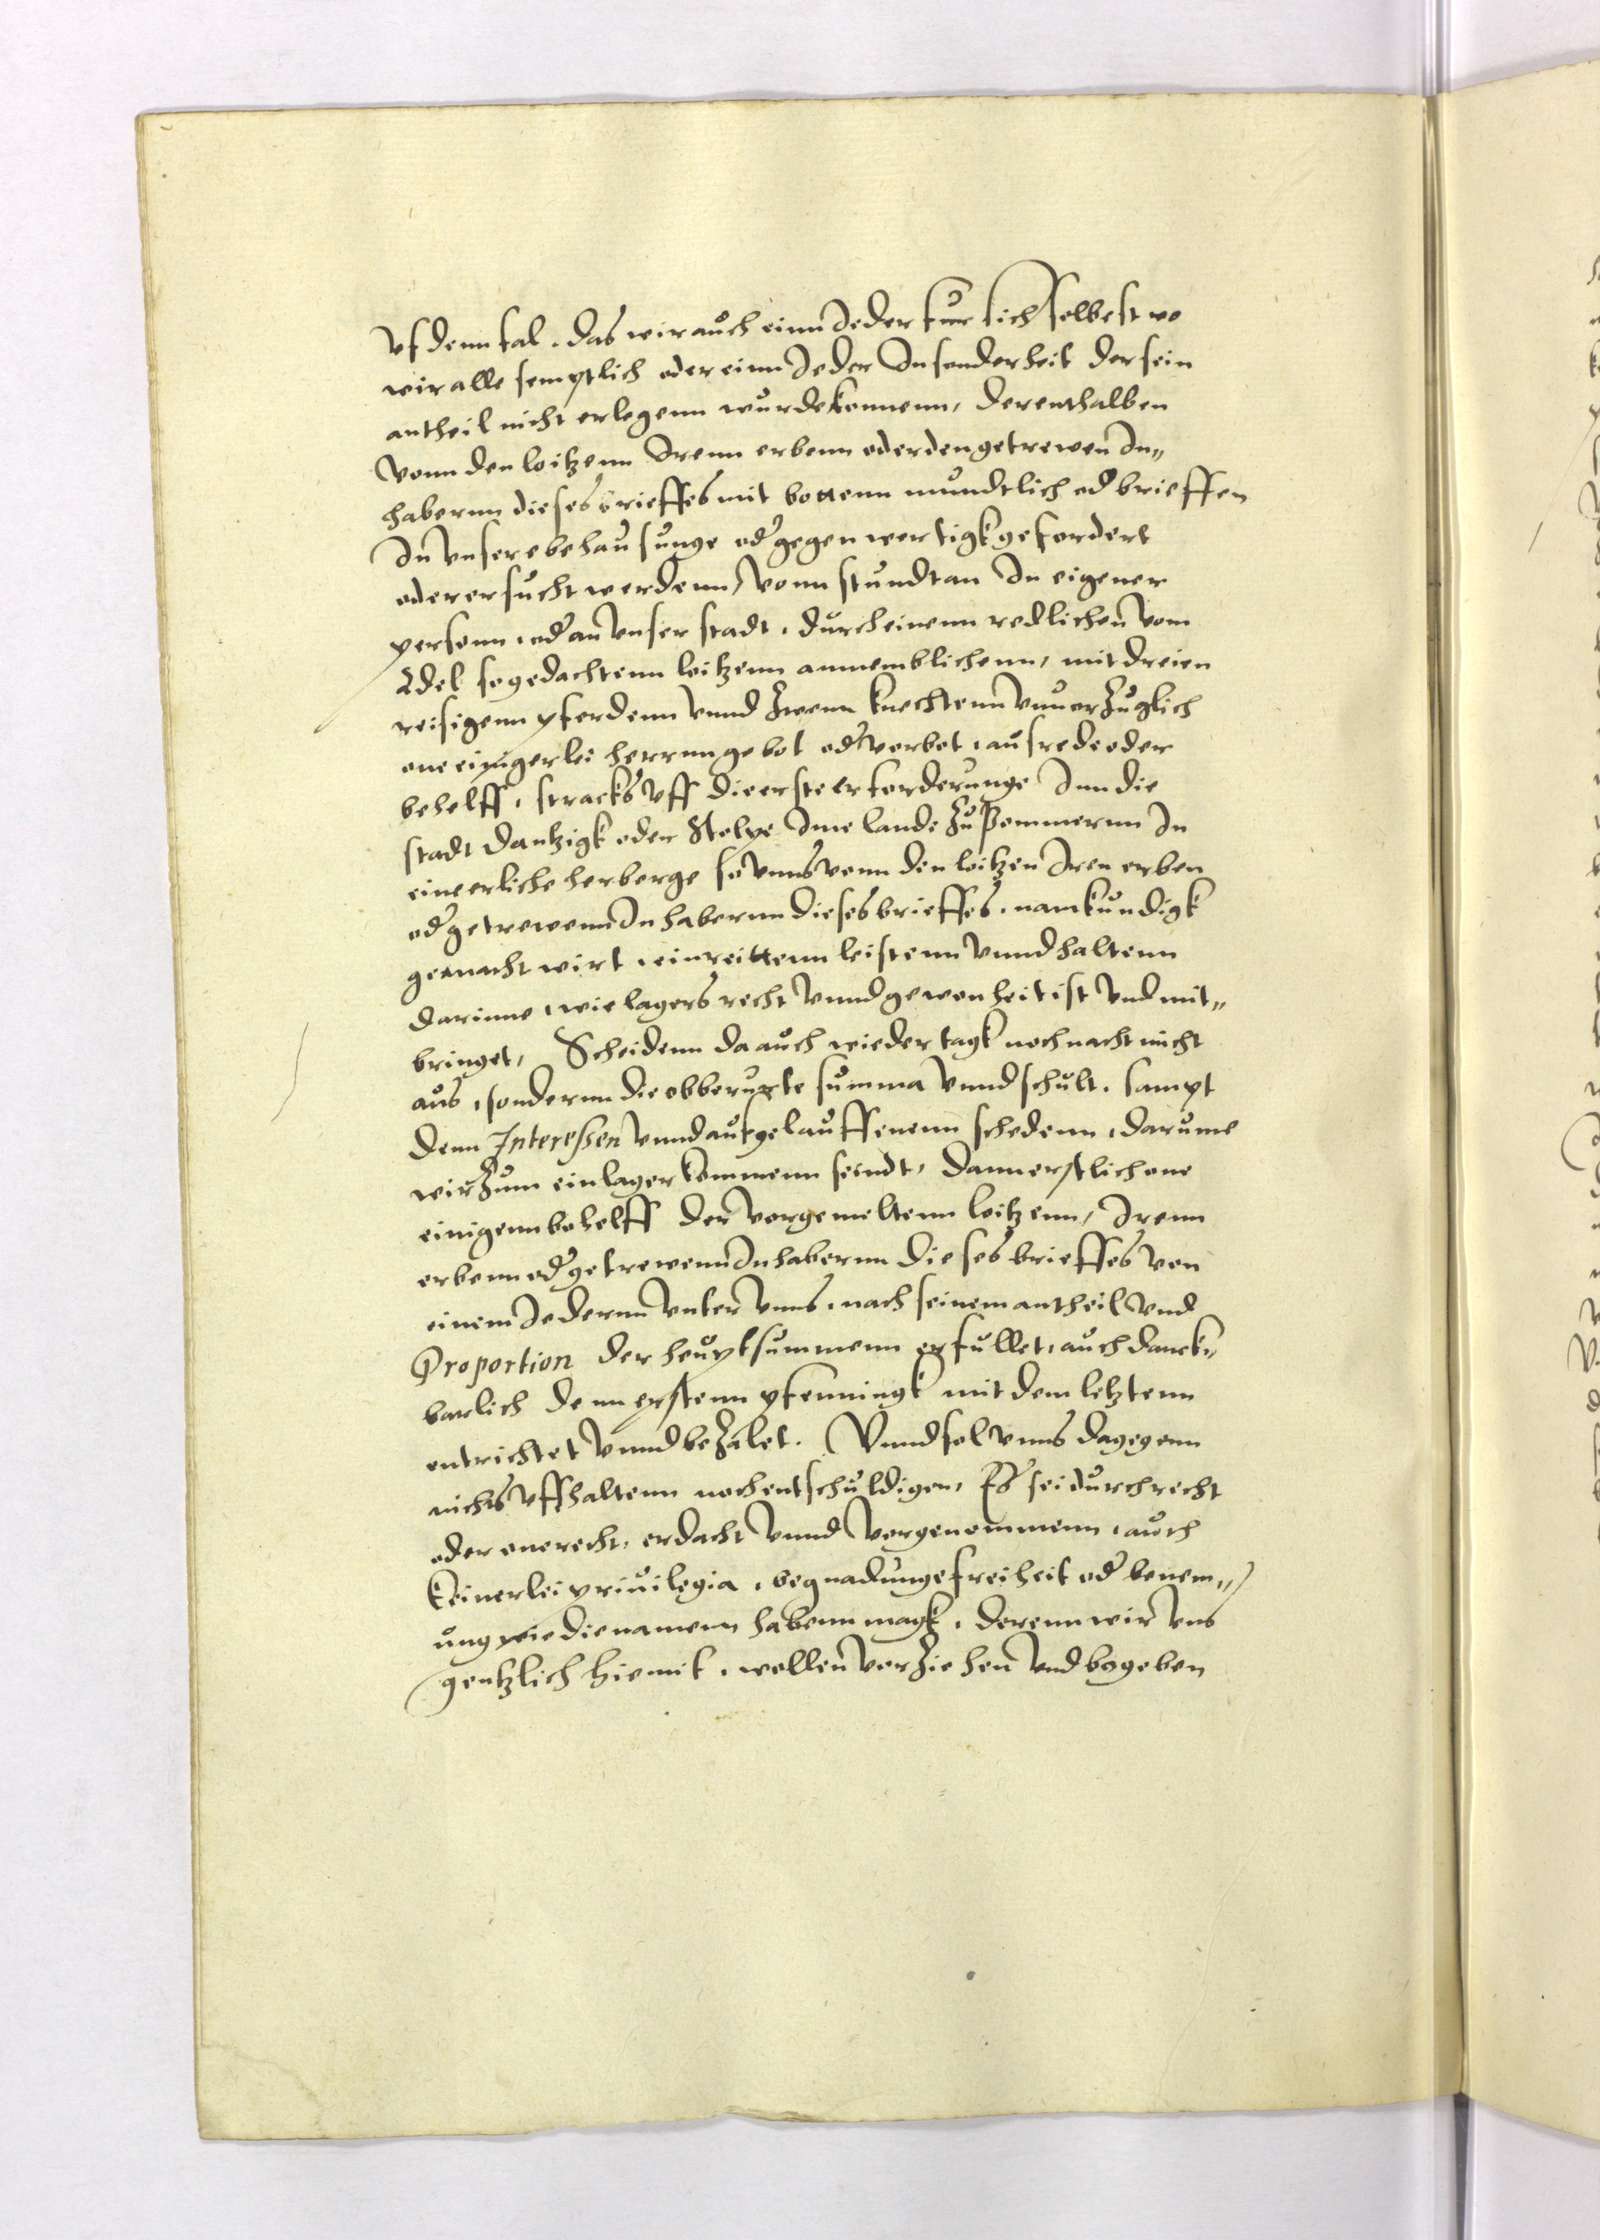 Vf denn fal, das wir auch einn Jeder fur sich selbest wo
wir alle semptlich oder einn Jeder Jnsonderheit der sein
antheil nicht erlegenn wurde konnenn, derenthalben
vonn den loitzenn Jrenn erbenn oder den getrewen Jn„
habernn dieses brieffes mit bottenn mundtlich od brieffen
Jn vnsere behausunge od gegenwertigk gefordert
oder ersucht werdenn, vonn stundt an Jn eigener
personn, od an vnser stadt, durch einenn redlichen vom
Adel so gedachtenn loitzenn annemblichenn, mit dreien
reisigenn pferdenn vnnd zwenn knechtenn vnuerzuglich
one einigerlei herrnn gebot od verbot, ausrede oder
behelff, stracks vff die erste erforderunge Jnn die
stadt dantzigk oder Stolpe Jme lande zu Pommernn Jn
eine erliche herberge so vnns vonn den loitzen Jren erben
od getrewenn Jnhabernn dieses brieffes, namkundigk
gemacht wirt, einreittenn leistenn vnnd haltenn
darinne, wie lagers recht vnnd gewonheit ist vnd mit„
bringet, Scheidenn da auch wieder tagk noch nacht nicht
aus, sondernn die obberurte summa vnnd schult, sampt
denn Interessen vnnd aufgelauffenenn schedenn, darume
wir zum einlager kommenn seindt, dann erstlich one
einigenn behelff den vorgemeltenn loitzenn, Jrenn
erbenn od getrewenn Jnhabernn dieses brieffes von
einem Jedernn vnter vnns, nach seinem antheil vnd
Proportion der heuptsummenn erfullet, auch danck„
barlich denn erstenn pfenningk mit dem letztenn
entrichtet vnnd bezalet. Vnnd sol vnns dagegenn
nichts vffhaltenn noch entschuldigen, Es sei durch recht
oder one recht, erdacht vnnd vorgenommenn, auch
keinerlei priuilegia, begnadunge freiheit od benem„
ung wie die namenn habenn magk, derenn wir vns
gentzlich hiemit, wollen verziehen vnd begeben